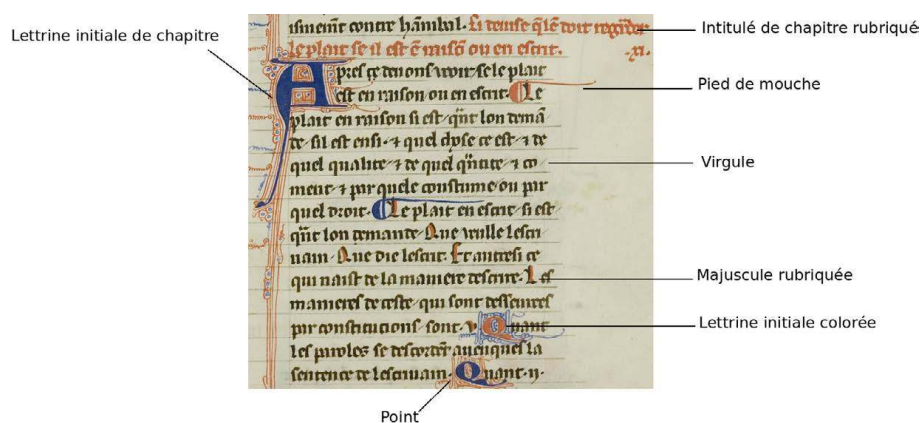 Lettrine initiale de chapitre
Intitulé de chapitre rubriqué
Pied de mouche
Virgule
Majuscule rubriquée
Lettrine initiale colorée
Point
contre hãnibal. Ci deuise q̃ lẽ doit
le plait se il est ẽ raisõ ou en escrit. .xi.
Apres ce deuons veoir se le plait
est en raison ou en escrit. Le
plait en raison si est / q̃nt lon demã
de / sil est ensi. ⁊ quel chose ce est / ⁊ de
quel qualite / ⁊ de quel q̃ntite / ⁊ co
ment / ⁊ par quele constume / ou par
quel droit. Le plait en escrit / si est /
q̃nt lon demande / Que vuille lescri
uain / Que die lescrit. Et autresi ce
qui naist de la maniere descrire. Les
manieres de ceste / qui sont
par constitucions / sont .v. Quant
les paroles se la
sentence de lescriuain. Quant .ij.